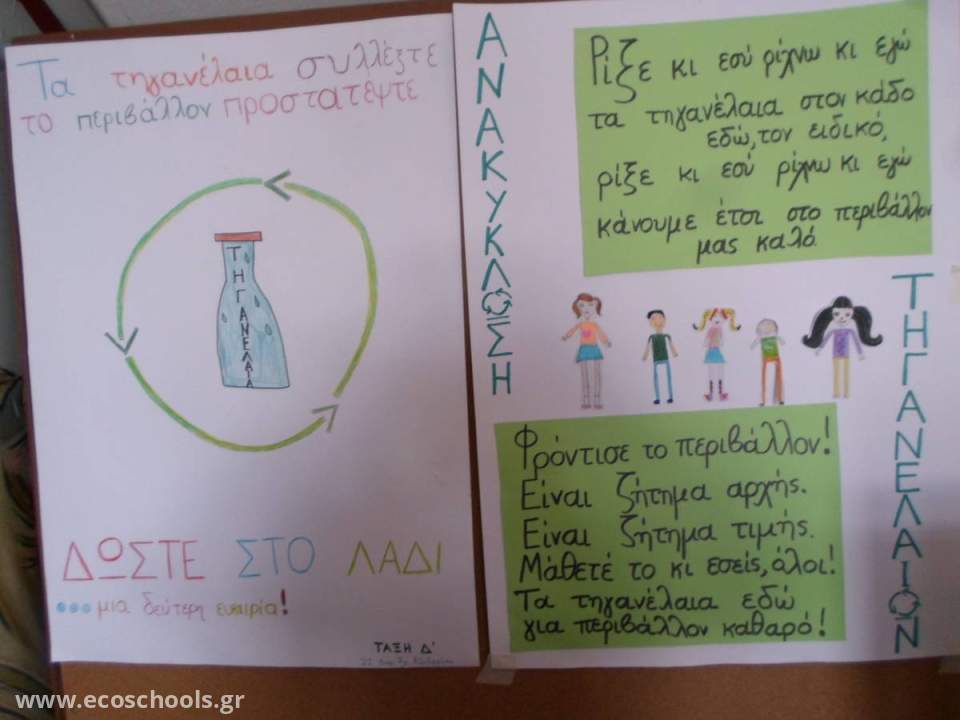 Τα τηγανέλαια συλλέξτε
το περιβάλλον προστατέψτε
ΤΗΓΑΝΕΛΑΙΑ
ΔΩΣΤΕ ΣΤΟ ΛΑΔΙ
...μια δεύτερη ευκαιρία!
ΤΑΞΗ Δ'
ΑΝΑΚΥΚΛΩΣΗ
Ρίξε κι εσύ ρίχνω κι εγώ
τα τηγανέλαια στον κάδο
εδώ, τον ειδικό,
ρίξε κι εσύ ρίχνω κι εγώ
κάνουμε έτσι στο περιβάλλον
μας καλό.
ΤΗΓΑΝΕΛΑΙΩΝ
Φρόντισε το περιβάλλον!
Είναι ζήτημα αρχής.
Είναι ζήτημα τιμής.
Μάθετέ το κι εσείς, όλοι!
Τα τηγανέλαια εδώ
για περιβάλλον καθαρό!
www.ecoschools.gr